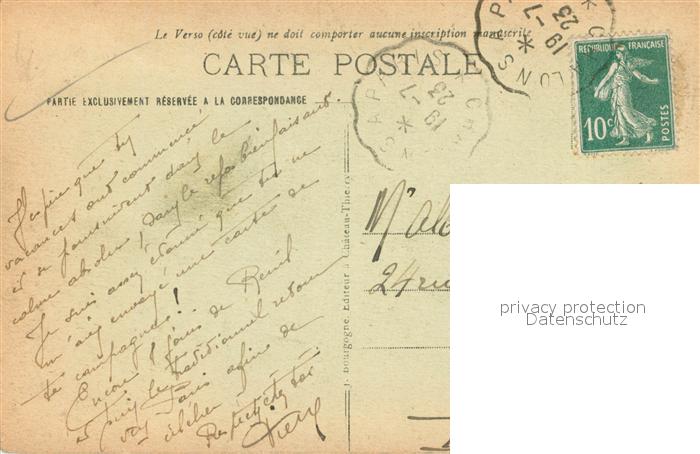 Le Verso (côté vue) ne doit comporter aucune inscription manuscrite
CARTE POSTALE
PARTIE EXCLUSIVEMENT RÉSERVÉE A LA CORRESPONDANCE
J'espère que tes
vacances ont commencé
et se poursuivent dans le
calme absolu, dans le repos bienfaisant.
Je suis assez étonné que tu ne
m'aies envoyé une carte de
ta campagne!
Encore jours de Reuil
et puis le traditionnel retour
vers Paris afin de
célébrer
Pierre
J. Bourgogne, Editeur à Château-Thierry
24 rue
RÉPUBLIQUE FRANÇAISE
10c
POSTES
19 -7
23
19 -7
23
privacy protection
Datenschutz